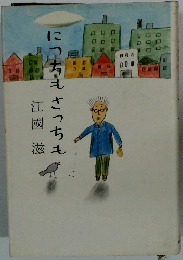 にっちもさっちも
江國滋